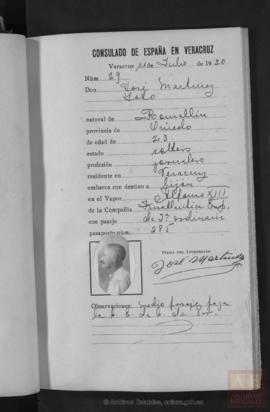 CONSULADO DE ESPAÑA EN VERACRUZ
Veracruz 11 de Julio de 1930
Núm. 29
Don José Martínez
natural de
provincia de Oviedo
de edad de 23
estado soltero
profesión jornalero
residente en Veracruz
embarca con destino a Gijón
en el Vapor Alfonso XIII
de la Compañía Trasatlántica Esp.
con pasaje de 3ª ordinaria
pasaporte núm. 285
FIRMA DEL INTERESADO
José Martínez
Observaciones: medio pasaje paga
la
© Archivos Estatales, cultura.gob.es